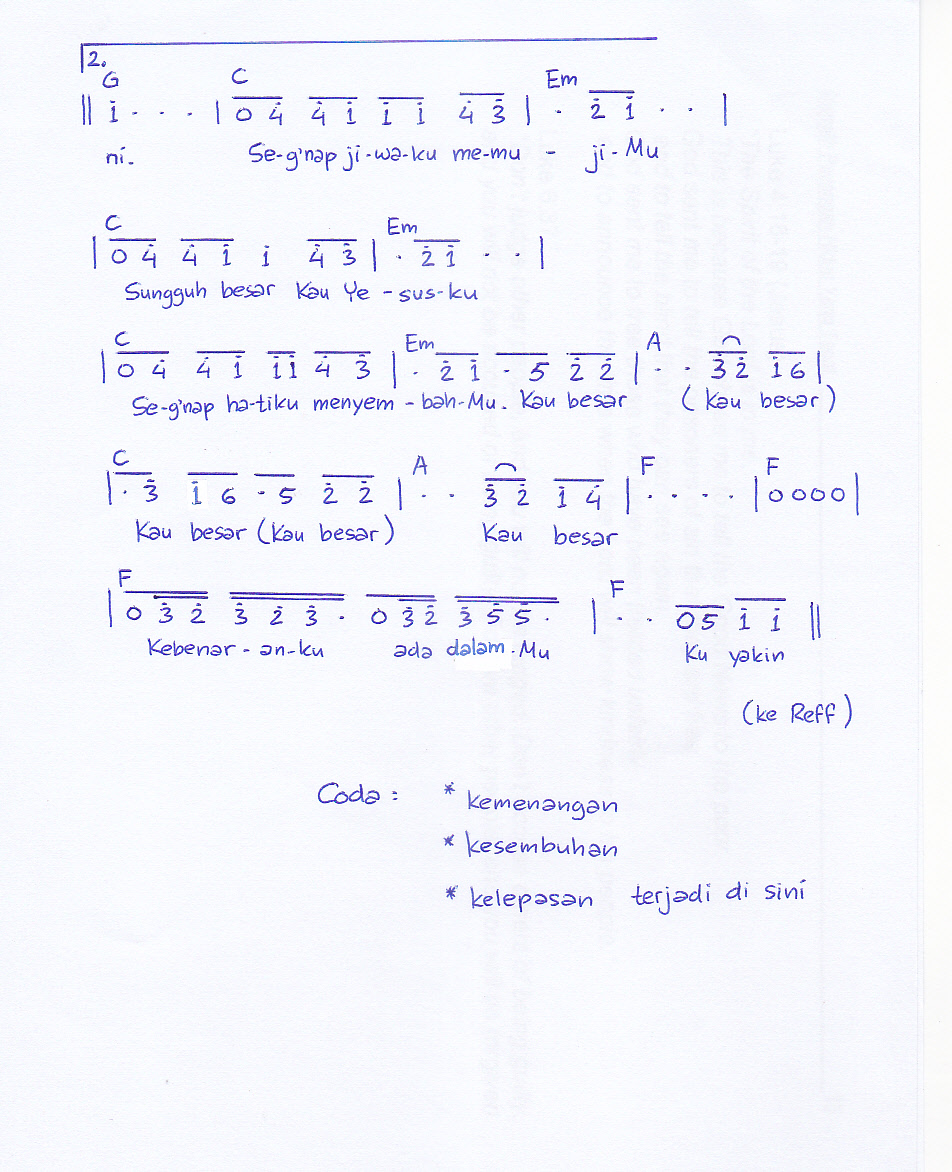 2.
G C Em
‖ i̇ . . . | 0 4̇ 4̇ 1̇ 1̇ 1̇ 4̇ 3̇ | . 2̇ 1̇ . . |
ni. Se-g'nap ji-wa-ku me-mu - ji-Mu
C Em
| 0 4̇ 4̇ 1̇ 1̇ 4̇ 3̇ | . 2̇ 1̇ . . |
Sungguh besar Kau Ye-sus-ku
C Em A
| 0 4̇ 4̇ 1̇ 1̇1̇ 4̇ 3̇ | . 2̇ 1̇ . 5 2̇ 2̇ | . . 3̇ 2̇ 1̇ 6 |
Se-g'nap ha-tiku menyem-bah-Mu. Kau besar (Kau besar)
C A F F
| . 3̇ 1̇ 6 . 5 2̇ 2̇ | . . 3̇ 2̇ 1̇ 4̇ | . . . . | 0 0 0 0 |
Kau besar (Kau besar) Kau besar
F F
| 0 3̇ 2̇ 3̇ 2̇ 3̇ . 0 3̇ 2̇ 3̇ 5̇ 5̇ . | . . 0 5 1̇ 1̇ ‖
Kebenar-an-ku ada dalam-Mu Ku yakin
(ke Reff)
Coda : * kemenangan
* kesembuhan
* kelepasan terjadi di sini